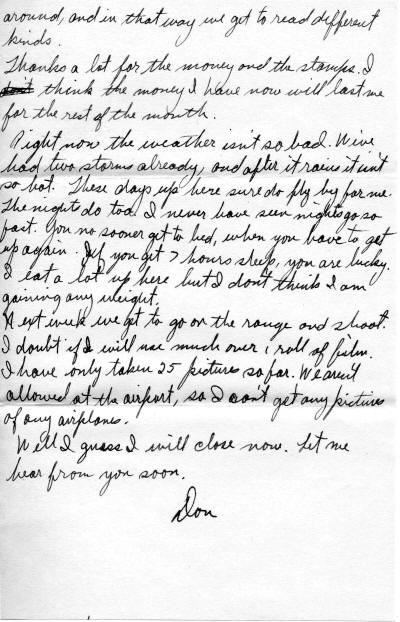 around, and in that way we get to read different
kinds.
Thanks a lot for the money and the stamps. I
think the money I have now will last me
for the rest of the month.
Right now the weather isn't so bad. We've
had two storms already, and after it rains it isn't
so hot. These days up here sure do fly by for me.
The night do too. I never have seen nights go so
fast. You no sooner get to bed, when you have to get
up again. If you get 7 hours sleep, you are lucky.
I eat a lot up here but I don't think I am
gaining any weight.
Next week we get to go on the range and shoot.
I doubt if I will use much over 1 roll of film.
I have only taken 25 pictures so far. We aren't
allowed at the airport, so I can't get any pictures
of any airplanes.
Well I guess I will close now. Let me
hear from you soon.
Don